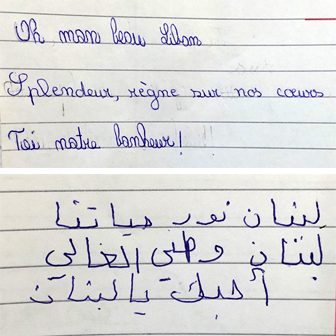 Oh mon beau Liban
Splendeur, règne sur nos cœurs
Toi notre bonheur!
لبنان نور حياتنا
لبنان وطني الغالي
أحبك يا لبنان